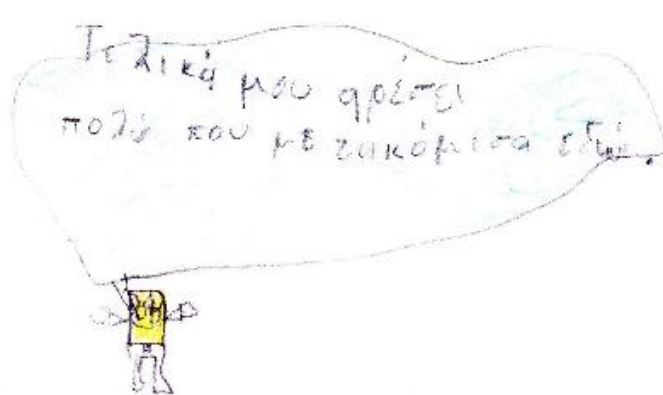 Τελικά μου αρέσει
πολύ που μετακόμισα εδώ.